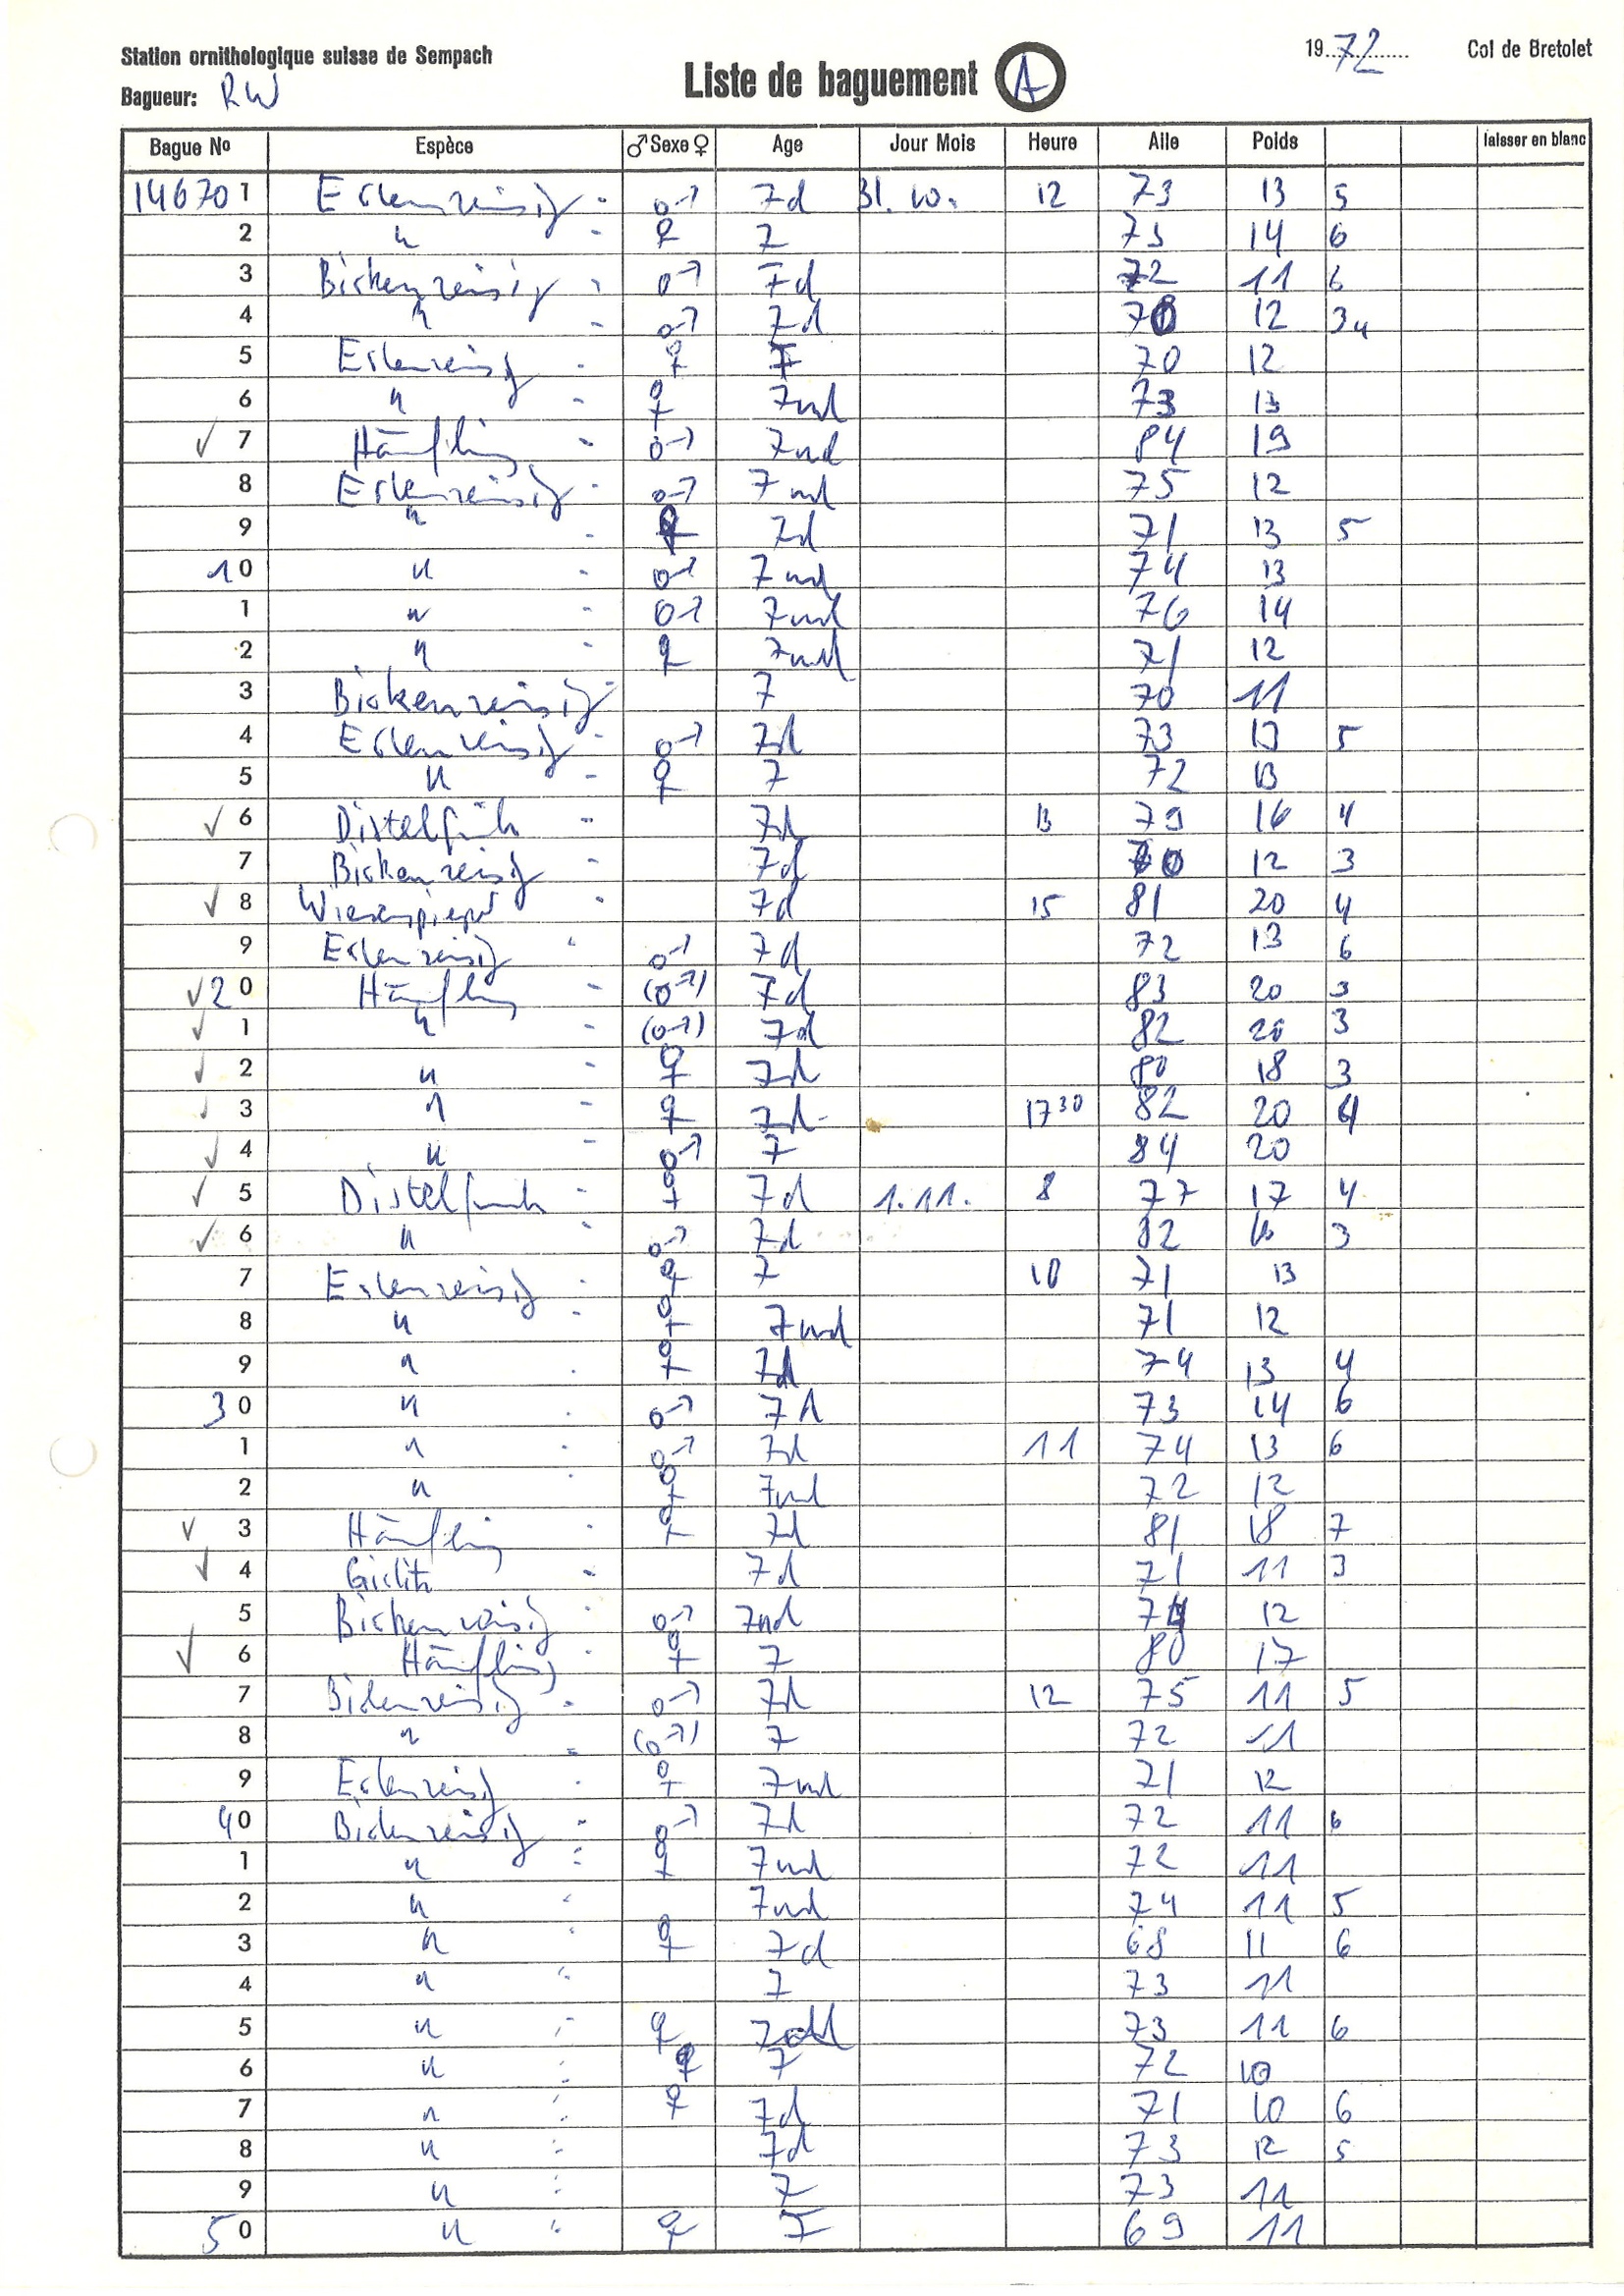 Station ornithologique suisse de Sempach
Bagueur: RW
Liste de baguement A
1972 Col de Bretolet
Bague No Espèce ♂ Sexe ♀ Age Jour Mois Heure Aile Poids laisser en blanc
146701 Erlenzeisig - ♂ 7d 31. 10. 12 73 13 5
2 " - ♀ 7 73 14 6
3 Birkenzeisig - ♂ 7d 72 11 6
4 " - ♂ 7d 70 12 34
5 Erlenzeisig - ♀ 7 70 12
6 " - ♀ 7nd 73 13
✓ 7 Hänfling - ♂ 7nd 84 19
8 Erlenzeisig - ♂ 7nd 75 12
9 " - ♀ 7d 71 13 5
10 " - ♂ 7nd 74 13
1 " - ♂ 7nd 76 14
2 " - ♀ 7nd 71 12
3 Birkenzeisig - 7 70 11
4 Erlenzeisig - ♂ 7d 73 13 5
5 " - ♀ 7 72 13
✓ 6 Distelfink - 7d 13 79 16 4
7 Birkenzeisig - 7d 70 12 3
✓ 8 Wiesenpieper - 7d 15 81 20 4
9 Erlenzeisig - ♂ 7d 72 13 6
✓ 20 Hänfling - (♂) 7d 83 20 3
✓ 1 " - (♂) 7d 82 20 3
✓ 2 " ♀ 7d 80 18 3
✓ 3 " - ♀ 7d 17 30 82 20 4
✓ 4 " - ♂ 7 84 20
✓ 5 Distelfink - ♀ 7d 1.11. 8 77 17 4
✓ 6 " - ♂ 7d 82 16 3
7 Erlenzeisig - ♀ 7 10 71 13
8 " - ♀ 7nd 71 12
9 " - ♀ 7d 74 13 4
30 " - ♂ 7d 73 14 6
1 " - ♂ 7d 11 74 13 6
2 " - ♀ 7nd 72 12
✓ 3 Hänfling - ♀ 7d 81 18 7
✓ 4 Girlitz - 7d 71 11 3
5 Birkenzeisig - ♂ 7nd 74 12
✓ 6 Hänfling - ♀ 7 80 17
7 Birkenzeisig - ♂ 7d 12 75 11 5
8 " - (♂) 7 72 11
9 Erlenzeisig - ♀ 7nd 71 12
40 Birkenzeisig - ♂ 7d 72 11 6
1 " - ♀ 7nd 72 11
2 " - 7nd 74 11 5
3 " - ♀ 7d 68 11 6
4 " - 7 73 11
5 " - ♀ 73 11 6
6 " - ♀ 7 72 10
7 " - ♀ 7d 71 10 6
8 " - 7d 73 12 5
9 " - 7 73 11
50 " - ♀ 7 69 11